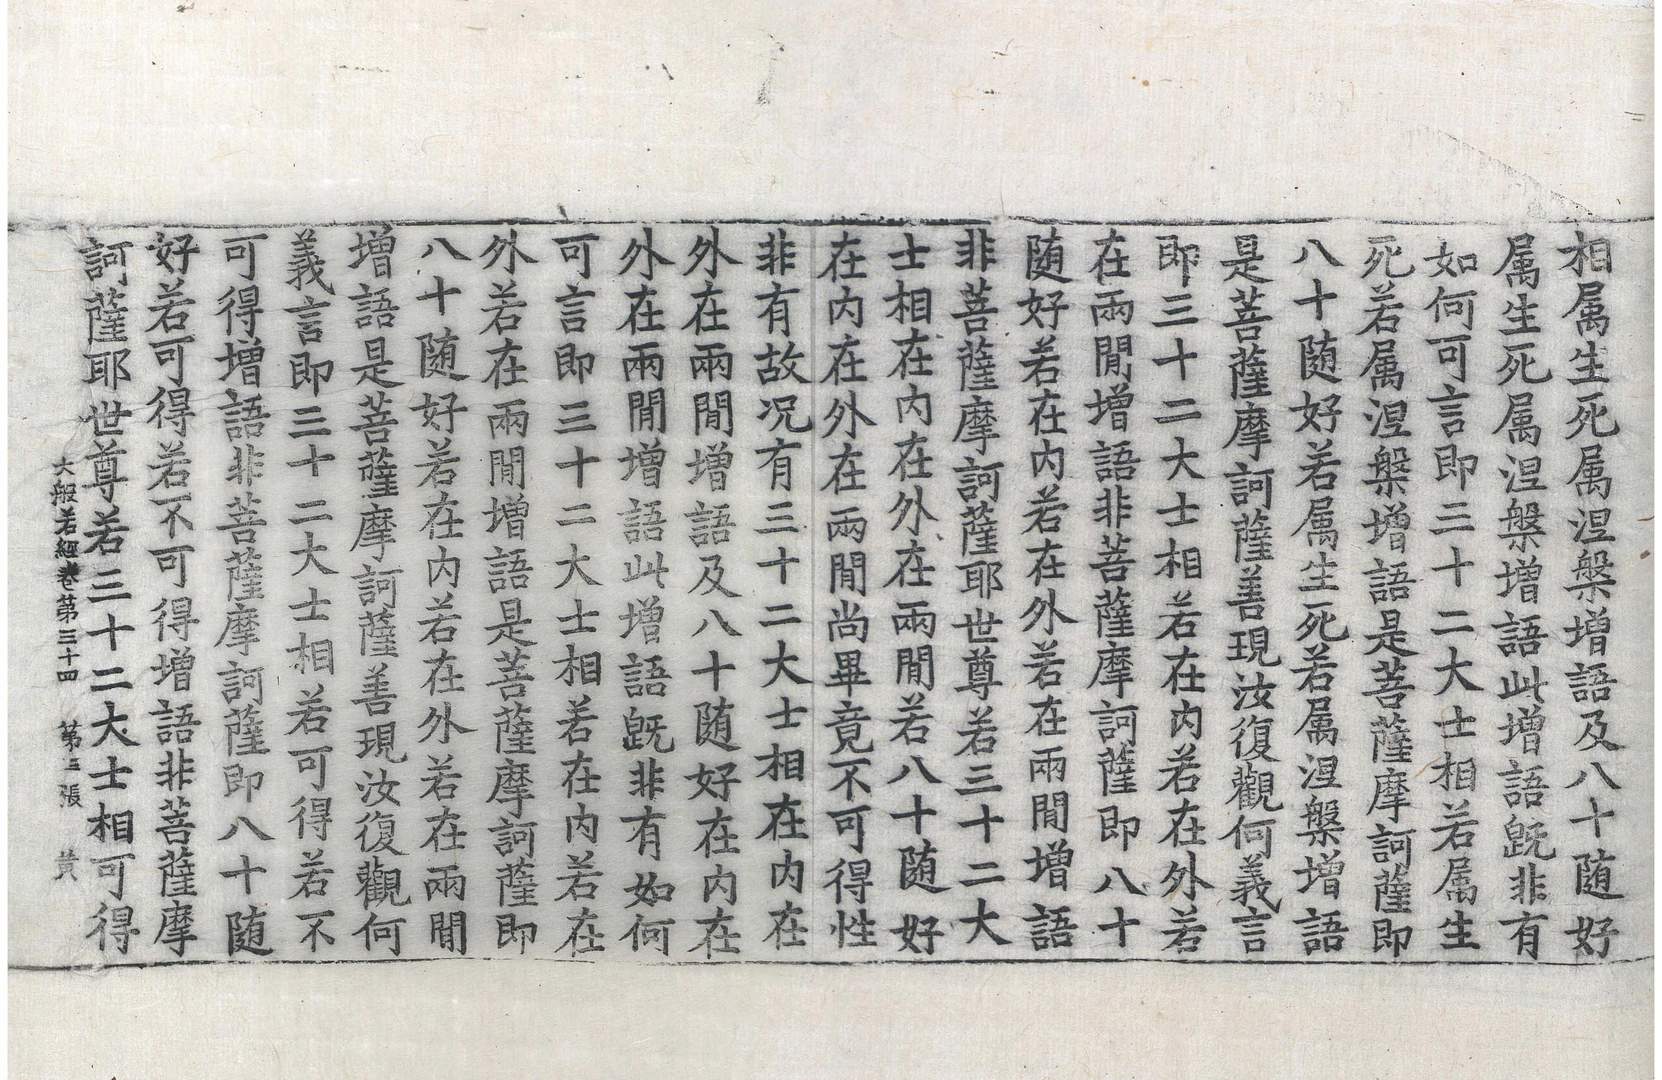 相属生死属涅槃增語及八十随好
属生死属涅槃增語此增語旣非有
如何可言即三十二大士相若属生
死若属涅槃增語是菩薩摩訶薩即
八十随好若属生死若属涅槃增語
是菩薩摩訶薩善現汝復觀何義言
即三十二大士相若在内若在外若
在兩閒增語非菩薩摩訶薩即八十
随好若在内若在外若在兩閒增語
非菩薩摩訶薩耶世尊若三十二大
士相在内在外在兩閒若八十随好
在内在外在兩閒尚畢竟不可得性
非有故况有三十二大士相在内在
外在兩閒增語及八十随好在内在
外在兩閒增語此增語旣非有如何
可言即三十二大士相若在内若在
外若在兩閒增語是菩薩摩訶薩即
八十随好若在内若在外若在兩閒
增語是菩薩摩訶薩善現汝復觀何
義言即三十二大士相若可得若不
可得增語非菩薩摩訶薩即八十随
好若可得若不可得增語非菩薩摩
訶薩耶世尊若三十二大士相可得
大般若經卷苐三十四 苐三張 黄